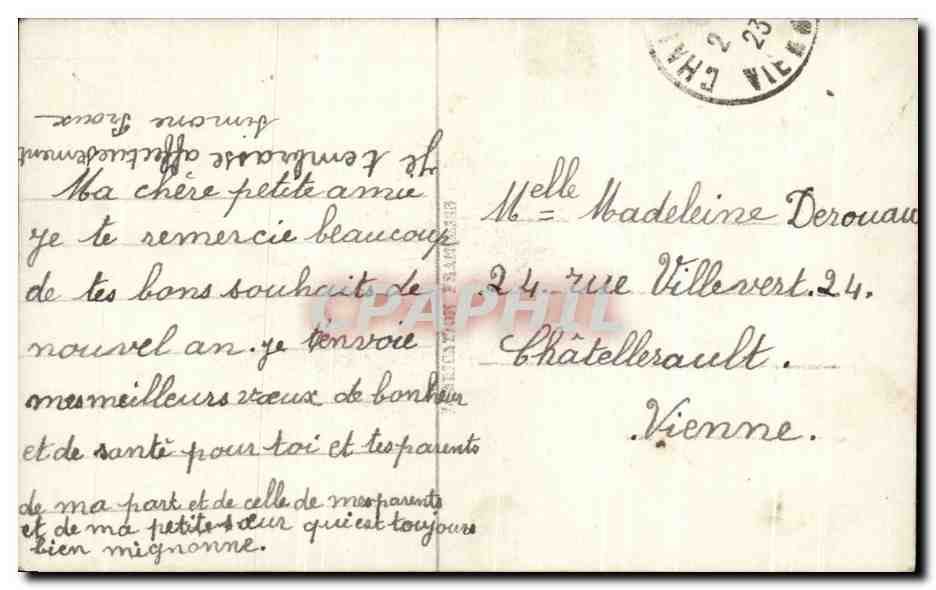 Ma chère petite amie
je te remercie beaucoup
de tes bons souhaits de
nouvel an. je t'envoie
mes meilleurs vœux de bonheur
et de santé pour toi et tes parents
de ma part et de celle de mes parents
et de ma petite sœur qui est toujours
bien mignonne.
Je t'embrasse affectueusement
Simone Proux
Melle Madeleine Derouau
24. rue Villevert. 24.
Châtellerault.
Vienne.
CHAT
2
23
VIEN
FABRICATION FRANÇAISE
CPAPHIL